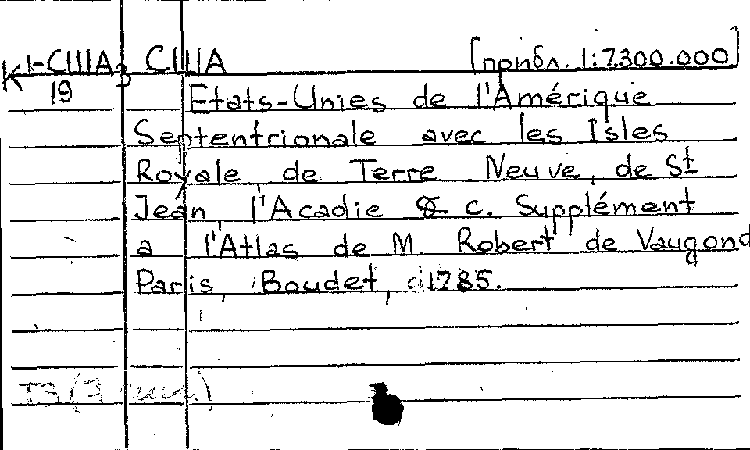 К1-США3 США [прибл. 1:7300.000]
19 Etats-Unies de l'Amérique
Septentrionale avec les Isles
Royale de Terre Neuve, de St
Jean, l'Acadie & c. Supplément
a l'Atlas de M. Robert de Vaugond
Paris, Boudet, 1785.